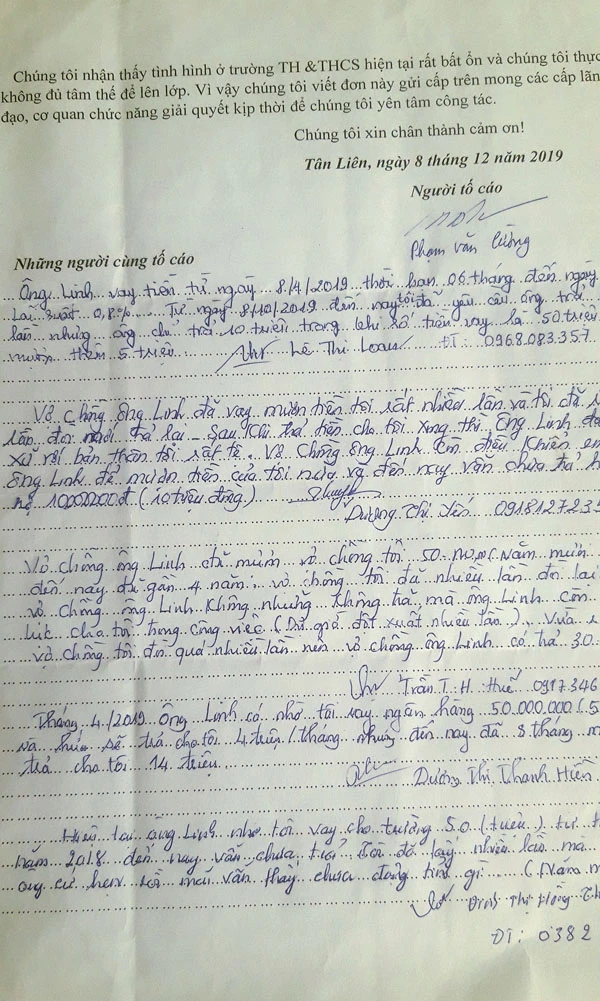 Chúng tôi nhận thấy tình hình ở trường TH &THCS hiện tại rất bất ổn và chúng tôi thực
không đủ tâm thế để lên lớp. Vì vậy chúng tôi viết đơn này gửi cấp trên mong các cấp lãn
đạo, cơ quan chức năng giải quyết kịp thời để chúng tôi yên tâm công tác.
Chúng tôi xin chân thành cảm ơn!
Tân Liên, ngày 8 tháng 12 năm 2019
Người tố cáo
Phạm Văn Cường
Những người cùng tố cáo
Ông Linh vay tiền từ ngày 8/4/2019 thời hạn 06 tháng đến ngày
Lãi suất 0,8% Từ ngày 8/10/2019 đến nay tôi đã yêu cầu ông trả
lần nhưng ông chỉ trả 10 triệu trong khi số tiền vay là 50 triệu
mượn thêm 5 triệu Lê Thị Loan ĐT: 0968.083.357
Vợ chồng ông Linh đã vay mượn tiền tôi rất nhiều lần và tôi đã
lần đòi mới trả lại Sau khi trả tiền cho tôi xong thì Ông Linh
xử với bản thân tôi rất tệ. Vợ chồng ông Linh còn điều khiển em
Ông Linh để mượn tiền của tôi nữa và đến nay vẫn chưa trả
nợ 10000000đ (10 triệu đồng)
Dương Thị Yến 091812723
Vợ chồng ông Linh đã mượn vợ chồng tôi 50. (Năm mươi
đến nay đã gần 4 năm, vợ chồng tôi đã nhiều lần đòi lại
vợ chồng ông Linh không những không trả, mà ông Linh còn
cho tôi trong công việc (Dự giờ đột xuất nhiều lần). Vừa
vợ chồng tôi đòi quá nhiều lần nên vợ chồng ông Linh có trả 30.
Trần T. H. Huế 0917346
Tháng 4/2019 Ông Linh có nhờ tôi vay ngân hàng 50.000.000 (5
và hứa sẽ trả cho tôi 4 triệu/tháng nhưng đến nay đã 8 tháng m
trả cho tôi 14 triệu.
Dương Thị Thanh Hiền
Hiện tại ông Linh nhờ tôi vay cho trường 50 (triệu) từ t
năm 2018 đến nay vẫn chưa trả. Tôi đã nhiều lần mà
ông cứ hẹn tôi mãi vẫn thấy chưa gì (Năm m
Thị Hồng
ĐT: 0382